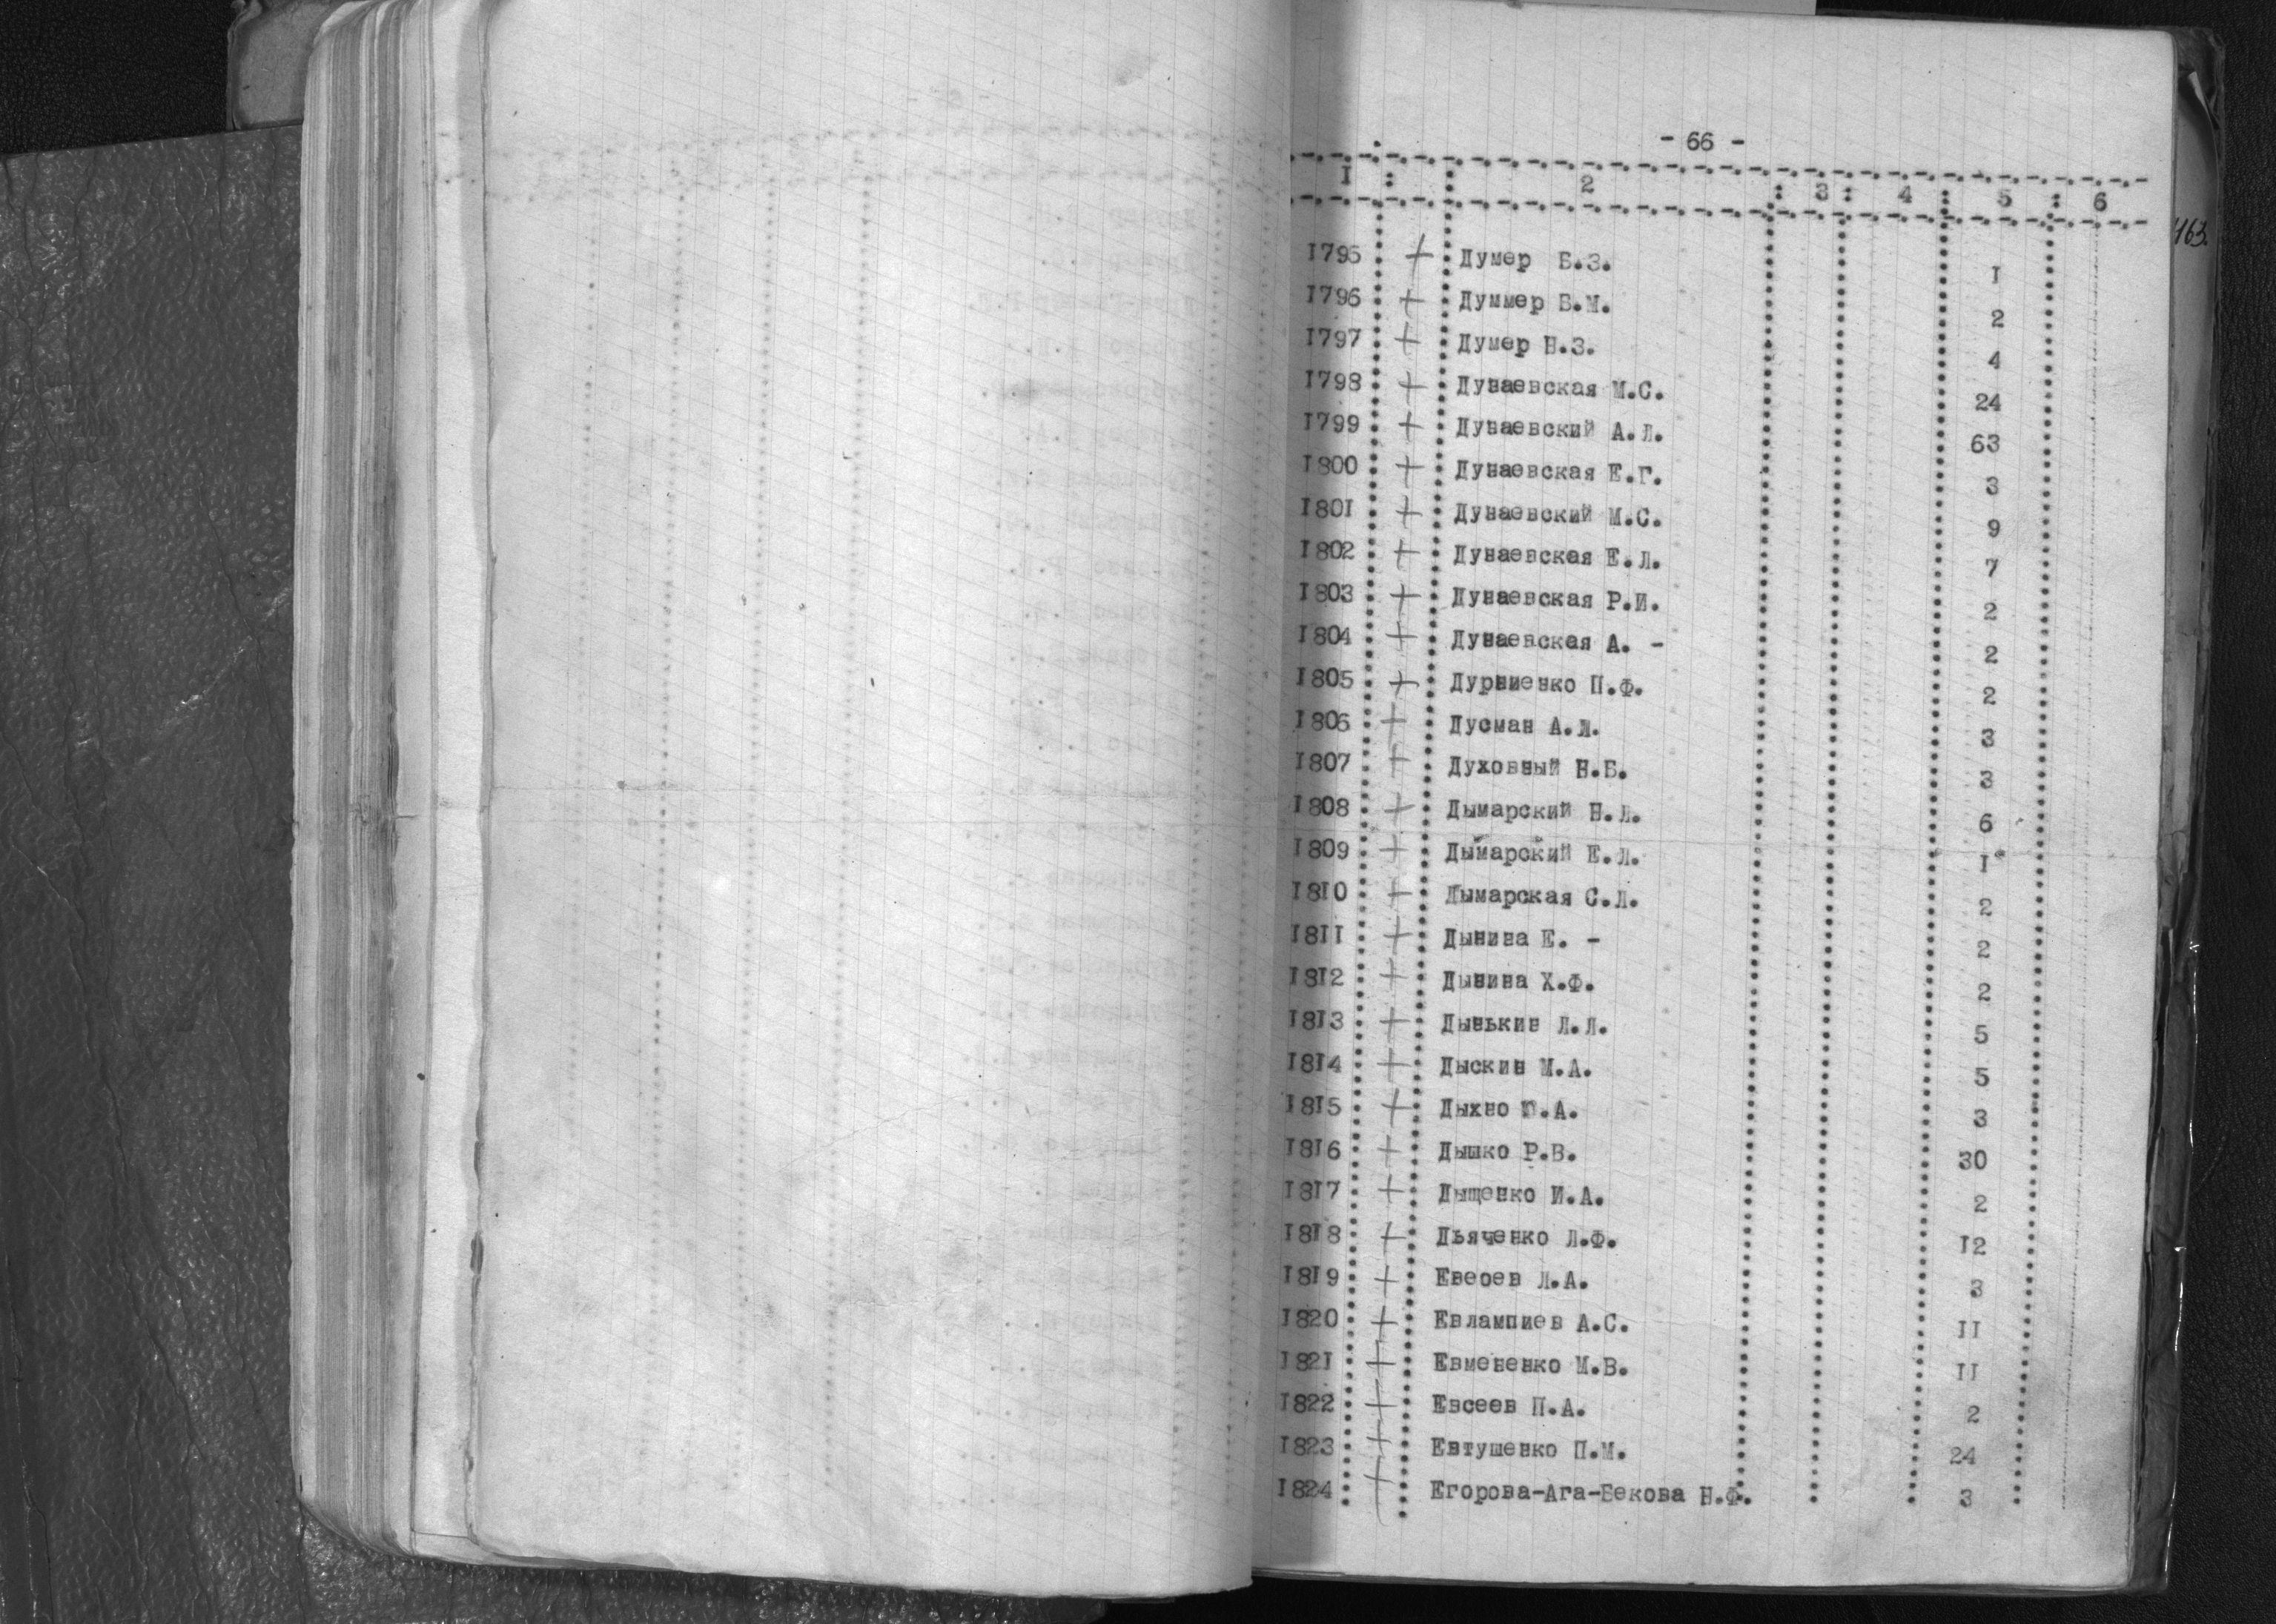 - 66 -
I : : 2 : 3 : 4 : 5 : 6
463.
1795 + Думер Б.З. I
1796 + Думмер Б.М. 2
1797 + Думер Н.З. 4
1798 + Дунаевская М.С. 24
1799 + Дунаевский А.Л. 63
1800 + Дунаевская Е.Г. 3
180I + Дунаевский М.С. 9
1802 + Дунаевская Е.Л. 7
1803 + Дунаевская Р.И. 2
1804 + Дунаевская А. - 2
1805 + Дурниенко П.Ф. 2
1806 + Дусман А.Л. 3
1807 + Духовный Н.Б. 3
1808 + Дымарский Н.Л. 6
1809 + Дымарский Е.Л. I
18I0 + Дымарская С.Л. 2
18II + Дынина Е. - 2
18I2 + Дынина Х.Ф. 2
18I3 + Дынькин Л.Л. 5
18I4 + Дыскин М.А. 5
18I5 + Дыхно .А. 3
18I6 + Дышко Р.В. 30
18I7 + Дыщенко И.А. 2
18I8 + Дьяченко Л.Ф. I2
18I9 + Евесев Л.А. 3
1820 + Евлампиев А.С. II
182I + Евмененко М.В. II
1822 + Евсеев П.А. 2
1823 + Евтушенко П.М. 24
1824 + Егорова-Ага-Бекова Н.Ф. 3